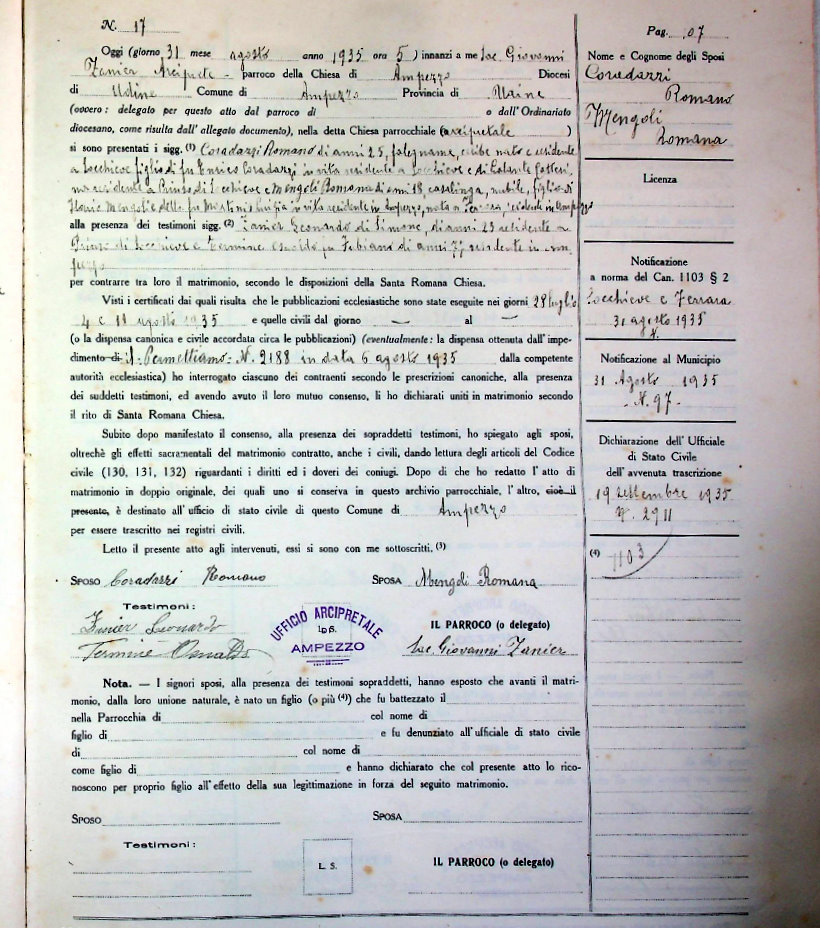 N. 17
Oggi (giorno 31 mese agosto anno 1935 ora 5) innanzi a me Sac. Giovanni
Zanier Arciprete - parroco della Chiesa di Ampezzo Diocesi
di Udine Comune di Ampezzo Provincia di Udine
(ovvero: delegato per questo atto dal parroco di o dall'Ordinariato
diocesano, come risulta dall'allegato documento), nella detta Chiesa parrocchiale (arcipretale )
si sono presentati i sigg. (1) Coradazzi Romano di anni 25, falegname, celibe nato e residente
a Socchieve figlio di fu Enrico Coradazzi in vita residente a Socchieve e di
residente a Priuso di Socchieve e Mengoli Romana di anni 18, casalinga, nubile, figlia di
Mengoli e della fu in vita residente in Ampezzo, nata a Ferrara residente in Ampezzo
alla presenza dei testimoni sigg. (2) Zanier Leonardo di Simone, di anni 23 residente a
Priuso di Socchieve e Termine Osvaldo fu Fabiano di anni 77 residente in Am-
pezzo
per contrarre tra loro il matrimonio, secondo le disposizioni della Santa Romana Chiesa.
Visti i certificati dai quali risulta che le pubblicazioni ecclesiastiche sono state eseguite nei giorni 28 luglio
4 e 11 agosto 1935 e quelle civili dal giorno — al —
(o la dispensa canonica e civile accordata circa le pubblicazioni) (eventualmente: la dispensa ottenuta dall'impe-
dimento di il - Permettiamo - N. 2188 in data 6 agosto 1935 dalla competente
autorità ecclesiastica) ho interrogato ciascuno dei contraenti secondo le prescrizioni canoniche, alla presenza
dei suddetti testimoni, ed avendo avuto il loro mutuo consenso, li ho dichiarati uniti in matrimonio secondo
il rito di Santa Romana Chiesa.
Subito dopo manifestato il consenso, alla presenza dei sopraddetti testimoni, ho spiegato agli sposi,
oltrechè gli effetti sacramentali del matrimonio contratto, anche i civili, dando lettura degli articoli del Codice
civile (130, 131, 132) riguardanti i diritti ed i doveri dei coniugi. Dopo di che ho redatto l'atto di
matrimonio in doppio originale, dei quali uno si conserva in questo archivio parrocchiale, l'altro, cioè il
presente, è destinato all'ufficio di stato civile di questo Comune di Ampezzo
per essere trascritto nei registri civili.
Letto il presente atto agli intervenuti, essi si sono con me sottoscritti. (3)
SPOSO Coradazzi Romano SPOSA Mengoli Romana
Testimoni:
Zanier Leonardo
Termine Osvaldo
UFFICIO ARCIPRETALE
L. S.
AMPEZZO
IL PARROCO (o delegato)
Sac. Giovanni Zanier
Nota. — I signori sposi, alla presenza dei testimoni sopraddetti, hanno esposto che avanti il matri-
monio, dalla loro unione naturale, è nato un figlio (o più (4)) che fu battezzato il
nella Parrocchia di col nome di
figlio di e fu denunziato all'ufficiale di stato civile
di col nome di
come figlio di e hanno dichiarato che col presente atto lo rico-
noscono per proprio figlio all'effetto della sua legittimazione in forza del seguito matrimonio.
SPOSO SPOSA
Testimoni:
L. S.
IL PARROCO (o delegato)
Pag. 07
Nome e Cognome degli Sposi
Coradazzi
Romano
Mengoli
Romana
Licenza
Notificazione
a norma del Can. 1103 § 2
Socchieve e Ferrara
31 agosto 1935
Notificazione al Municipio
31 Agosto 1935
- N. 97 -
Dichiarazione dell'Ufficiale
di Stato Civile
dell'avvenuta trascrizione
19 Settembre 1935
N. 2911
(4) 1103